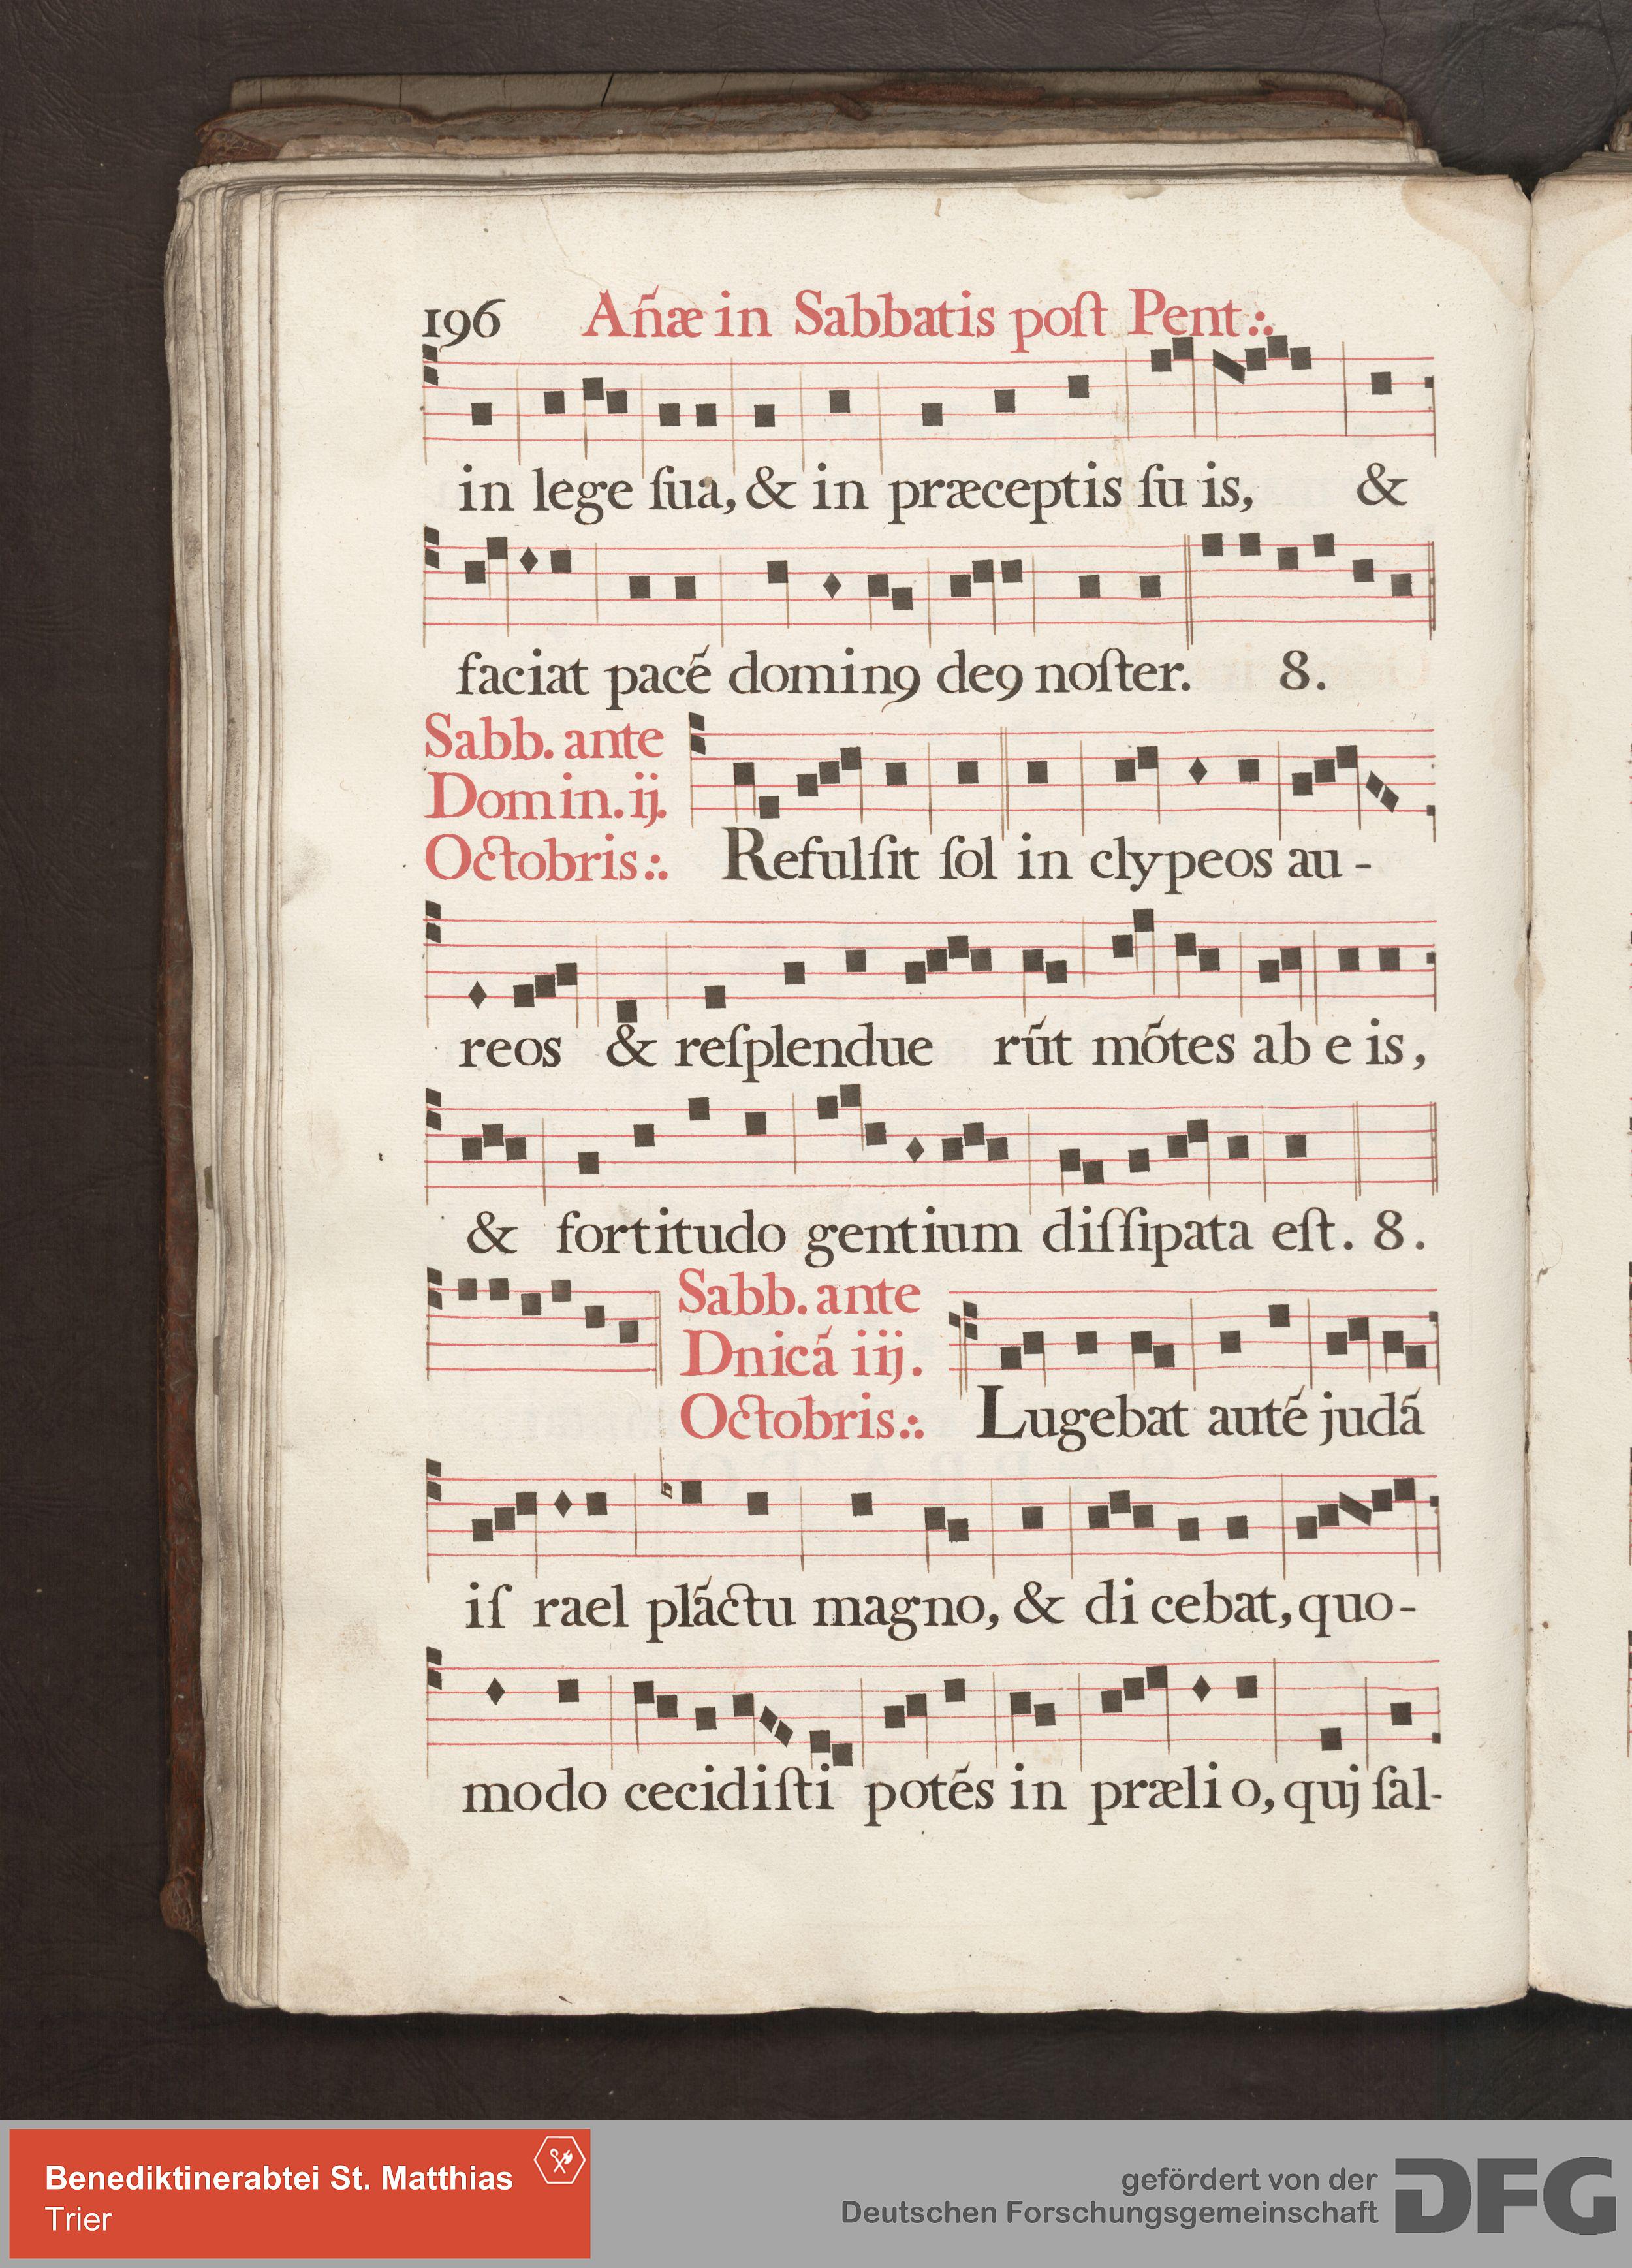 196 Añæ in Sabbatis poſt Pent:.
in lege ſua, & in præceptis ſu is, &
faciat pacé domin9 de9 noſter. 8.
Sabb. ante
Domin. ij.
Octobris:.
Refulſit ſol in clypeos au-
reos & reſplendue rũt mótes ab e is,
& fortitudo gentium diſſipata eſt. 8.
Sabb. ante
Dnicá iij.
Octobris:.
Lugebat auté judá
iſ rael pláctu magno, & di cebat, quo-
modo cecidiſti potés in præli o, quj ſal-
Benediktinerabtei St. Matthias
Trier
gefördert von der
Deutschen Forschungsgemeinschaft
DFG